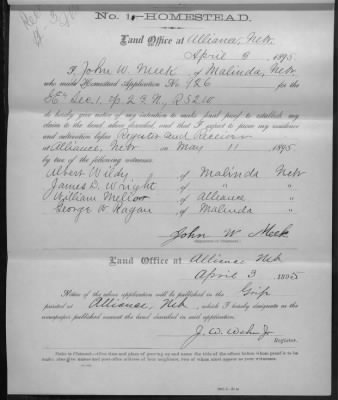 No. 1.—HOMESTEAD.
Land Office at Alliance, Nebr.
April 3, 1895
I, John W. Meek, of Malinda, Nebr.
who made Homestead Application No. 926 for the
E½ Sec. 1, Tp. 29 N, R 52 W
do hereby give notice of my intention to make final proof to establish my
claim to the land above described, and that I expect to prove my residence
and cultivation before Register and Receiver
at Alliance, Nebr on May 11, 1895
by two of the following witnesses:
Albert Wildy, of Malinda Nebr
James D. Wright, of " "
William , of Alliance "
George W Ragan, of Malinda "
John W Meek
Land Office at Alliance Neb
April 3 1895
Notice of the above application will be published in the Grip
printed at Alliance, Neb, which I hereby designate as the
newspaper published nearest the land described in said application.
J. W. Wehn Jr
Register.